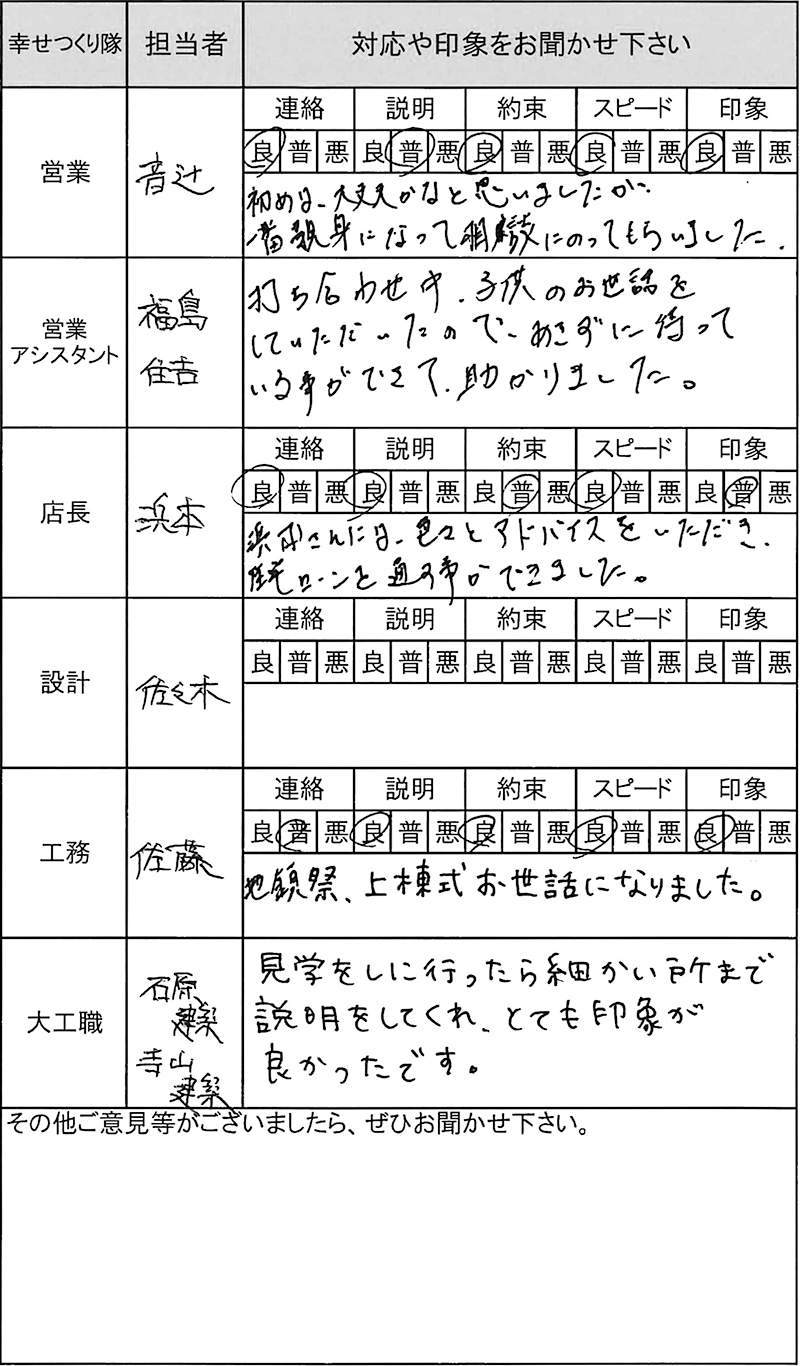 幸せつくり隊 担当者 対応や印象をお聞かせ下さい
営業 音辻
連絡 説明 約束 スピード 印象
良 普 悪 良 普 悪 良 普 悪 良 普 悪 良 普 悪
初めは、大丈夫かなと思いましたが、
一番親身になって相談にのってもらいました.
営業
アシスタント
福島
住吉
打ち合わせ中、子供のお世話を
していただいたので、あきずに待って
いる事ができて、助かりました。
店長 浜本
連絡 説明 約束 スピード 印象
良 普 悪 良 普 悪 良 普 悪 良 普 悪 良 普 悪
浜本さんには、色々とアドバイスをいただき、
住宅ローンを通す事ができました。
設計 佐々木
連絡 説明 約束 スピード 印象
良 普 悪 良 普 悪 良 普 悪 良 普 悪 良 普 悪
工務 佐藤
連絡 説明 約束 スピード 印象
良 普 悪 良 普 悪 良 普 悪 良 普 悪 良 普 悪
地鎮祭、上棟式お世話になりました。
大工職
石原
建築
寺山
建築
見学をしに行ったら細かい所まで
説明をしてくれ、とても印象が
良かったです。
その他ご意見等がございましたら、ぜひお聞かせ下さい。